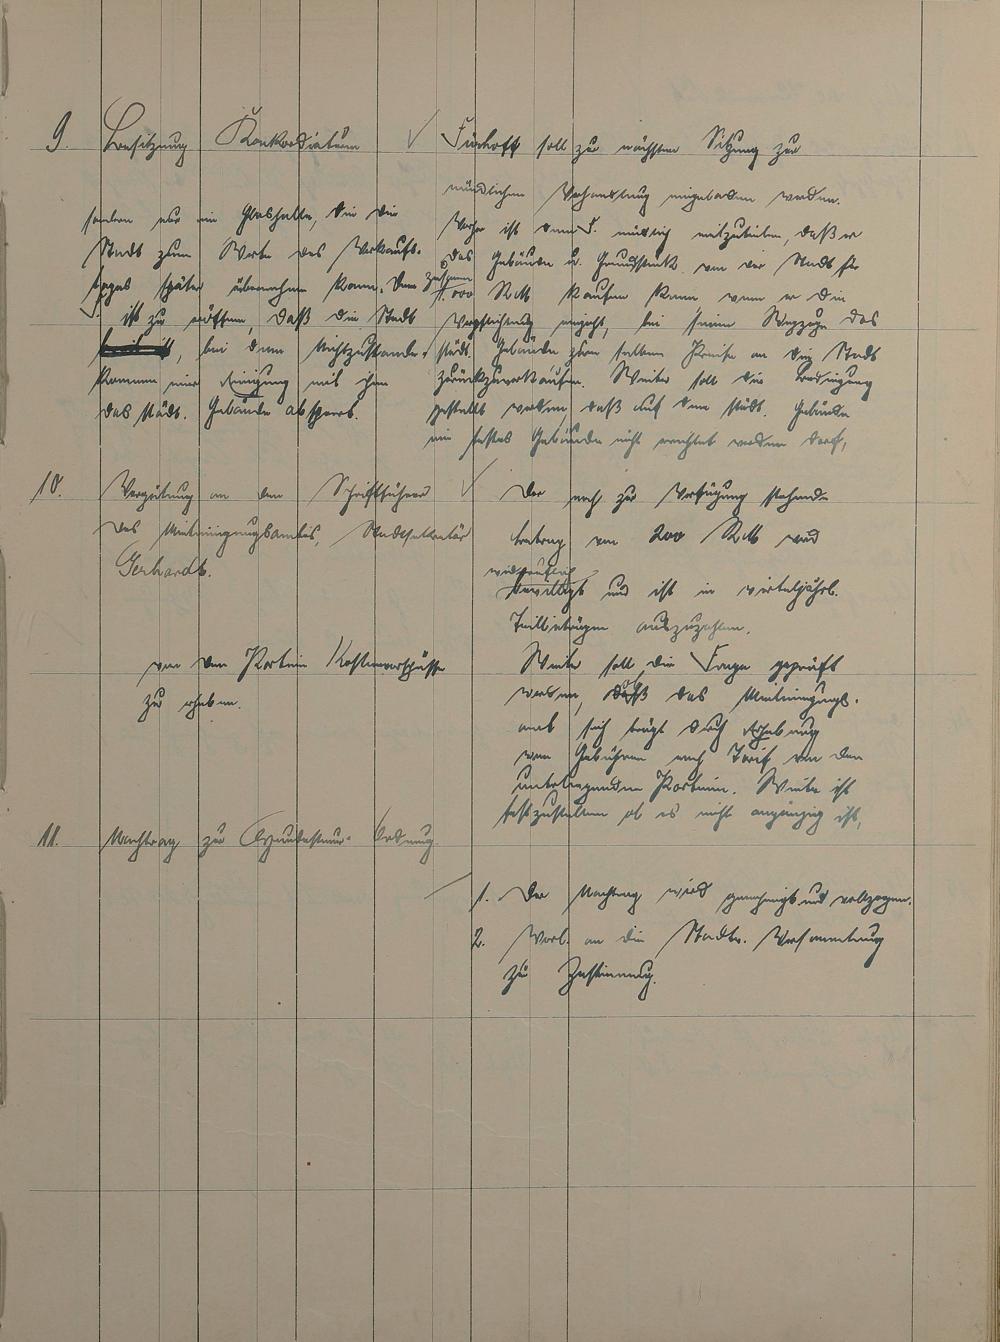 9. Besitzung Konkordiaturm
Fürhoff soll zur nächsten Sitzung zur
mündlichen Verhandlung eingeladen werden.
Vorher ist dem F. mitzuteilen, daß er
das Gebäude u. Grundstück von der Stadt für
zusammen 000 RM kaufen kann wenn er die
Verpflichtung eingeht, bei seinem Wegzuge das
städt. Gebäude zum selben Preise an die Stadt
zurückzuverkaufen. Weiter soll die Bedingung
gestellt werden, daß auf dem städt. Gelände
ein festes Gebäude nicht errichtet werden darf,
sondern nur eine Glashalle, die die
Stadt zum Werte des Verkaufs-
tages später übernehmen kann. Dem
F. ist zu eröffnen, daß die Stadt
, bei dem Nichtzustande-
kommen einer Einigung mit ihm
das städt. Gelände absperrt.
10. Vergütung an den Schriftführer
des Mieteinigungsamtes, Stadtsekretär
Gerhardt.
Der noch zur Verfügung stehende
Betrag von 200 RM wird
widerruflich
bewilligt und ist in vierteljährl.
Teilbeträgen auszuzahlen.
Weiter soll die Frage geprüft
werden, ob das Mieteinigungs-
amt sich trägt durch Erhebung
von Gebühren nach Tarif von den
unterliegenden Parteien. Weiter ist
festzustellen ob es nicht angängig ist,
von den Parteien Kostenvorschüsse
zu erheben.
11. Nachtrag zur Ordnung
1. Der Nachtrag wird genehmigt und vollzogen.
2. Vorl. an die Stadtv. Versammlung
zur Zustimmung.